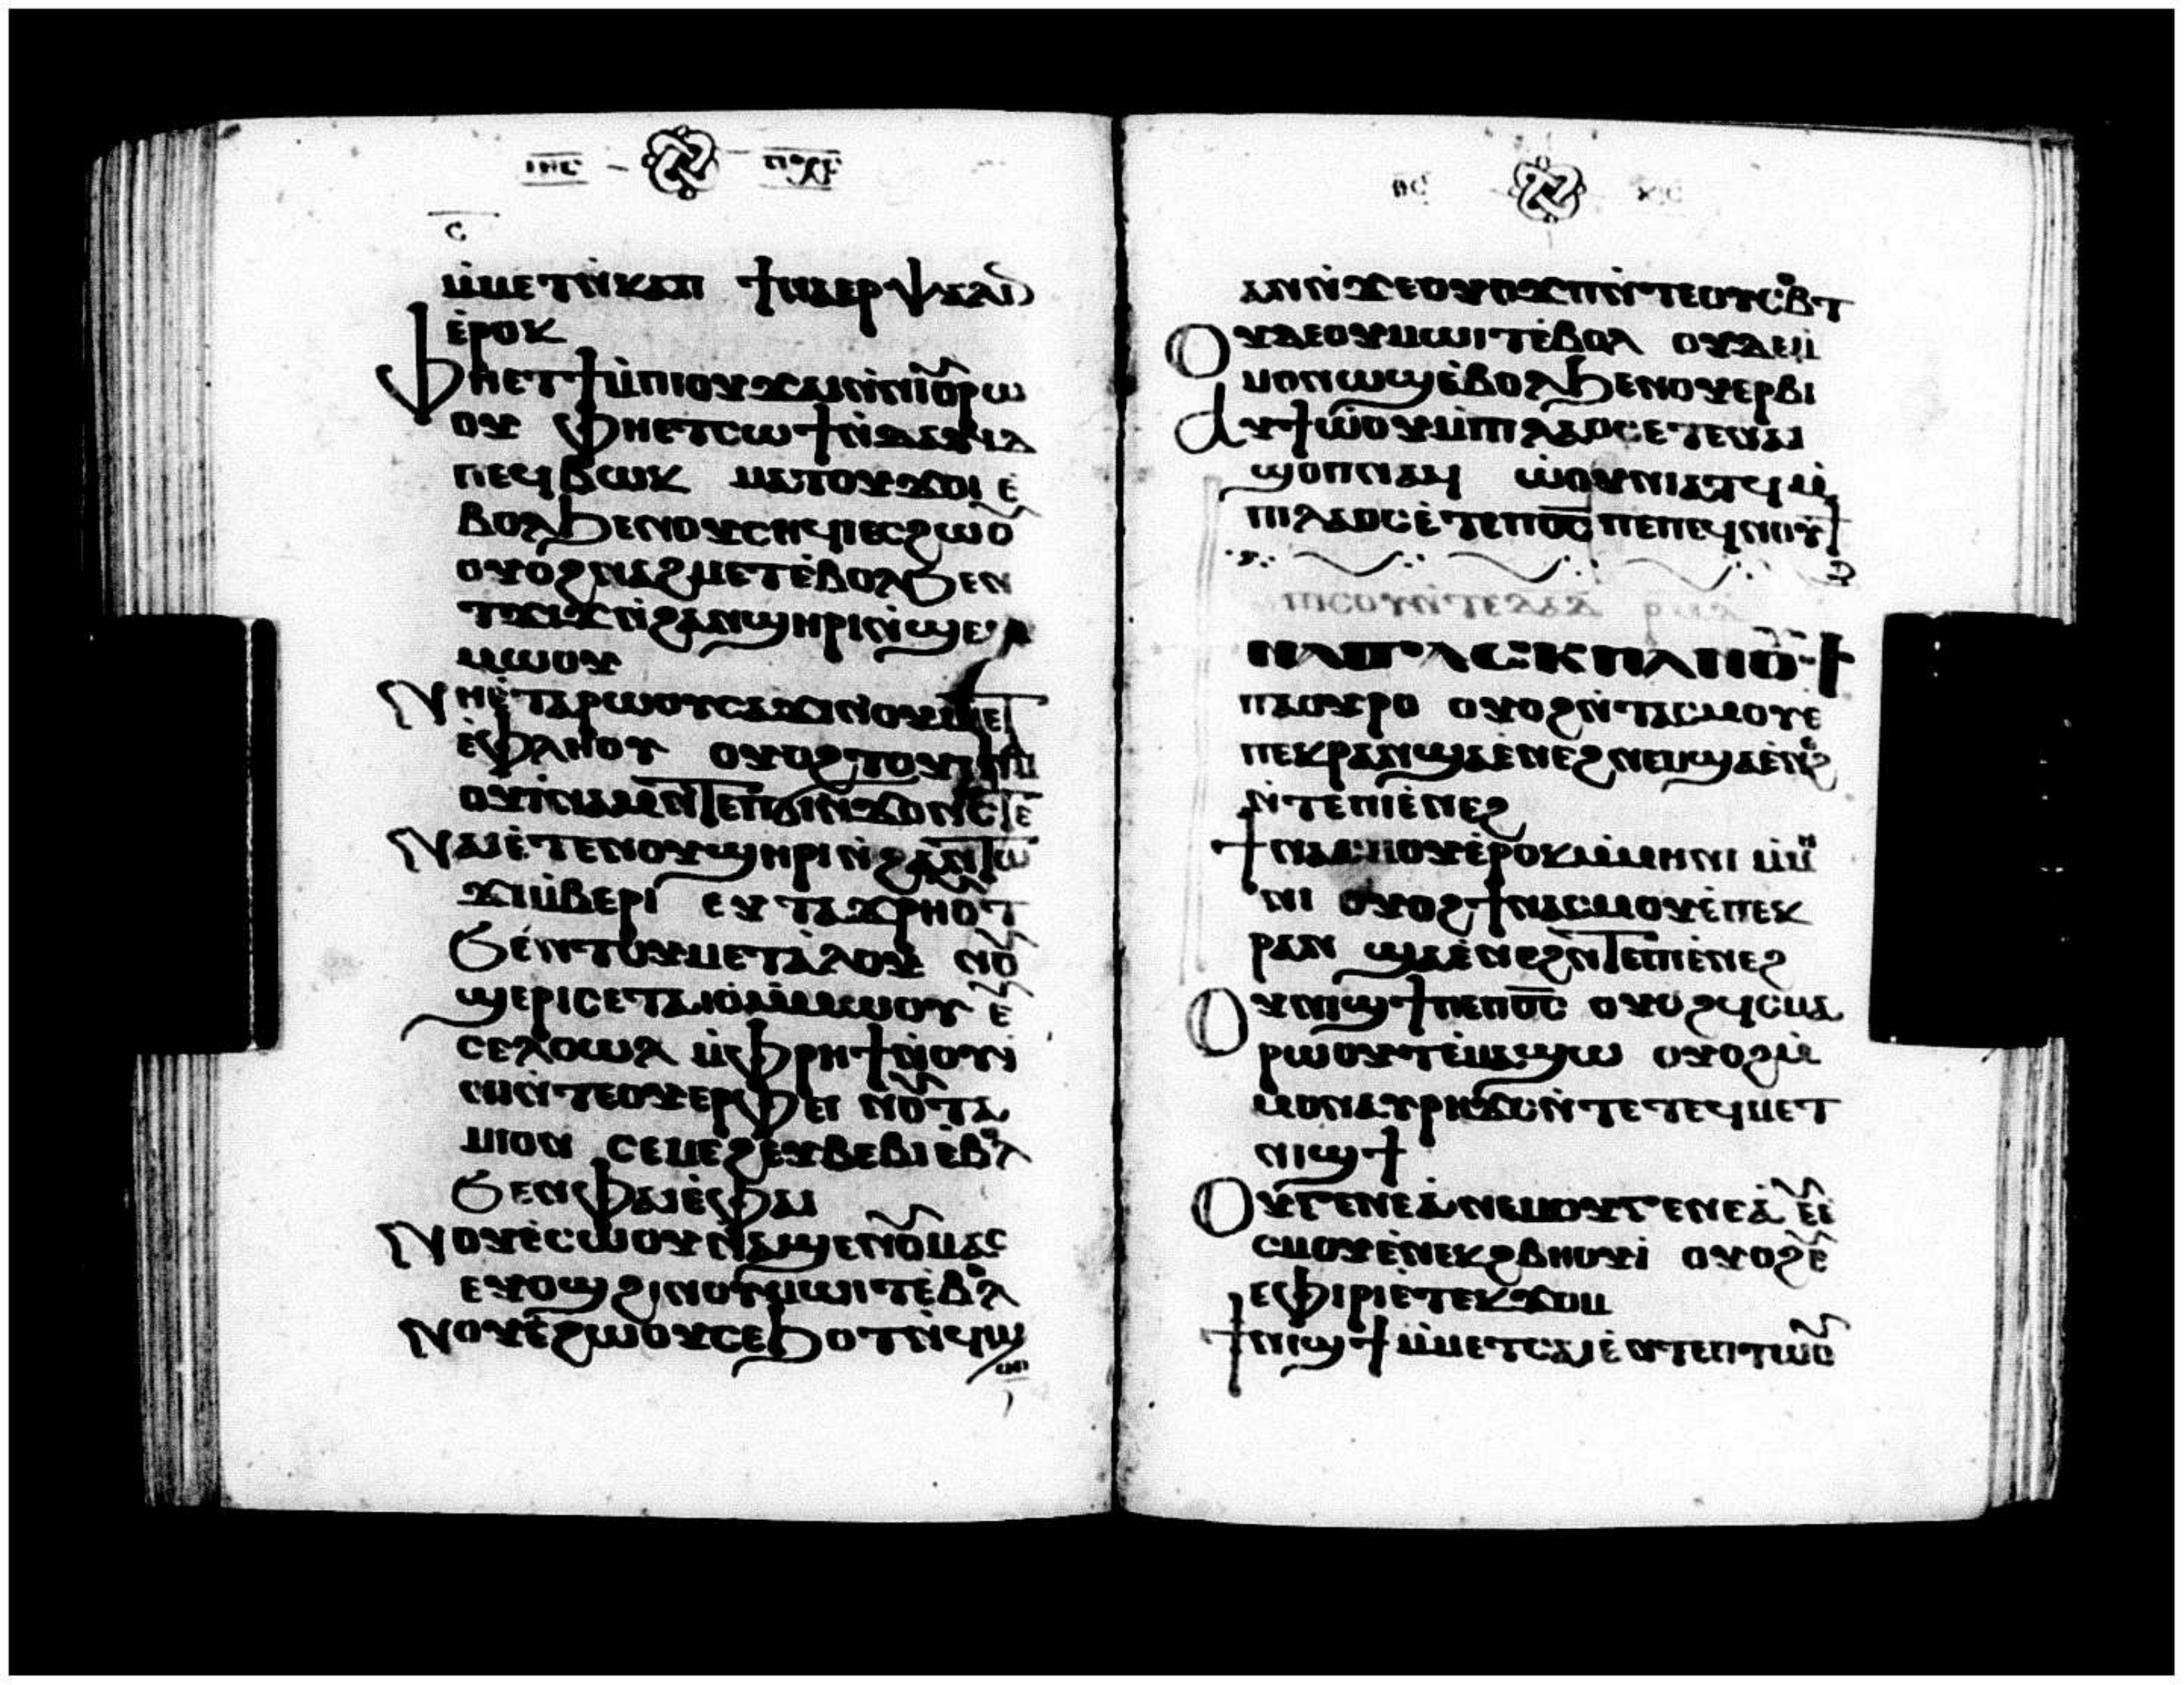 ⲓⲏⲥ ⲡⲭⲥ
ⲥ
ⲙ̀ⲙⲉⲧⲛ̀ⲕⲁⲡ ϯⲛⲁⲉⲣⲯⲁⲗⲓⲛ
ⲉ̀ⲣⲟⲕ
ⲫⲏⲉⲧϯⲙ̀ⲡⲓⲟⲩϫⲁⲓⲛ̀ⲛⲓⲟⲩⲣⲱ
ⲟⲩ ⲫⲏⲉⲧⲥⲱϯⲛ̀ⲇⲁⲩⲓⲇ
ⲡⲉϥⲃⲱⲕ ⲙⲁⲧⲟⲩϫⲟⲓ ⲉ̀
ⲃⲟⲗϧⲉⲛⲟⲩⲥⲏϥⲓⲉⲥϩⲱⲟⲩ
ⲟⲩⲟϩⲛⲁϩⲙⲉⲧⲉ̀ⲃⲟⲗϧⲉⲛ
ⲧϫⲓϫⲛ̀ϩⲁⲛϣⲏⲣⲓⲛ̀ϣⲉⲙ
ⲙⲱⲟⲩ
ⲛⲏⲉ̀ⲧⲁⲣⲱⲟⲩⲥⲁϫⲓⲛⲟⲩⲙⲉⲧ
ⲉ̀ⲫⲗⲏⲟⲩ ⲟⲩⲟϩⲧⲟⲩⲓⲛⲁⲙ
ⲟⲩⲓⲛⲁⲙⲛ̀ⲧⲉⲡϭⲓⲛϫⲟⲛⲥⲧⲉ
ⲛⲁⲓⲉ̀ⲧⲉⲛⲟⲩϣⲏⲣⲓⲛ̀ϩⲁⲛⲧⲱ
ϫⲓⲙ̀ⲃⲉⲣⲓ ⲉⲩⲧⲁϫⲣⲏⲟⲩⲧ
ϧⲉⲛⲧⲟⲩⲙⲉⲧⲁⲗⲟⲩ ⲛⲟⲩ
ϣⲉⲣⲓⲥⲉⲧⲁⲓⲟ̀ⲙ̀ⲙⲱⲟⲩ ⲉ̀
ⲥⲉⲗⲟⲱⲗ ⲙ̀ⲫⲣⲏϯⲛ̀ⲟⲩⲓ
ⲛⲓⲛ̀ⲧⲉⲟⲩⲉⲣⲫⲉⲓ ⲛⲟⲩⲧⲁ
ⲙⲓⲟⲛ ⲥⲉⲙⲉϩⲉⲩⲃⲉⲃⲓⲉ̀ⲃⲟⲗ
ϧⲉⲛⲫⲁⲓⲉ̀ⲫⲁⲓ
ⲛⲟⲩⲉ̀ⲥⲱⲟⲩⲛ̀ⲁϣⲉⲛⲟⲩⲙⲁⲥ
ⲉⲩⲟϣϩⲓⲛⲟⲩⲙⲱⲓⲧⲉ̀ⲃⲟⲗ
ⲛⲟⲩⲉ̀ϩⲱⲟⲩⲥⲉϧⲟⲧⲛ̀ϥⲙ
ⲙⲟⲛ
ⲑⲥ ⲭⲥ
ⲁⲛⲛ̀ϫⲉⲟⲩⲟϫⲡⲛ̀ⲧⲉⲟⲩⲥⲟⲃⲧ
ⲟⲩⲇⲉⲟⲩⲙⲱⲓⲧⲉ̀ⲃⲟⲗ ⲟⲩⲇⲉⲙ̀
ⲙⲟⲛⲱϣⲉ̀ⲃⲟⲗϧⲉⲛⲟⲩⲉⲣⲃⲓ
ⲁⲩϯⲱ̀ⲟⲩⲙ̀ⲡⲓⲗⲁⲟⲥⲉ̀ⲧⲉⲛⲁⲓ
ϣⲟⲡⲛⲁϥ ⲱ̀ⲟⲩⲛⲓⲁⲧϥⲙ̀
ⲡⲓⲗⲁⲟⲥⲉ̀ⲧⲉⲡⲟ̅ⲥ̅ⲡⲉⲡⲉϥⲛⲟⲩϯ
ⲛⲁϭⲁⲥⲕⲡⲁⲛⲟⲩϯ
ⲡⲁⲟⲩⲣⲟ ⲟⲩⲟϩⲛ̀ⲧⲁⲥⲙⲟⲩⲉ
ⲡⲉⲕⲣⲁⲛϣⲁⲉ̀ⲛⲉϩⲛⲉⲙϣⲁⲉ̀ⲛⲉϩ
ⲛ̀ⲧⲉⲡⲓⲉ̀ⲛⲉϩ
ϯⲛⲁⲥⲙⲟⲩⲉ̀ⲣⲟⲕⲙ̀ⲙⲏⲛⲓ ⲙ̀ⲙⲏ
ⲛⲓ ⲟⲩⲟϩϯⲛⲁⲥⲙⲟⲩⲉ̀ⲡⲉⲕ
ⲣⲁⲛ ϣⲁⲉ̀ⲛⲉϩⲛ̀ⲧⲉⲡⲓⲉ̀ⲛⲉϩ
ⲟⲩⲛⲓϣϯⲡⲉⲡⲟ̅ⲥ̅ ⲟⲩⲟϩϥⲥⲙⲁ
ⲣⲱⲟⲩⲧⲉ̀ⲙⲁϣⲱ ⲟⲩⲟϩⲙ̀
ⲙⲟⲛⲁⲩⲣⲏϫⲥⲛ̀ⲧⲉⲧⲉϥⲙⲉⲧ
ⲛⲓϣϯ
ⲟⲩⲅⲉⲛⲉⲁ̀ⲛⲉⲙⲟⲩⲅⲉⲛⲉⲁ̀ ⲉⲩⲉ̀
ⲥⲙⲟⲩⲉ̀ⲛⲉⲕϩⲃⲏⲟⲩⲓ̀ ⲟⲩⲟϩⲉⲩ
ⲉ̀ⲫⲓⲣⲓⲉ̀ⲧⲉⲕϫⲟⲙ
ϯⲛⲓϣϯⲙ̀ⲙⲉⲧⲥⲁⲓⲉ̀ ⲛ̀ⲧⲉⲡⲓⲱⲟⲩ